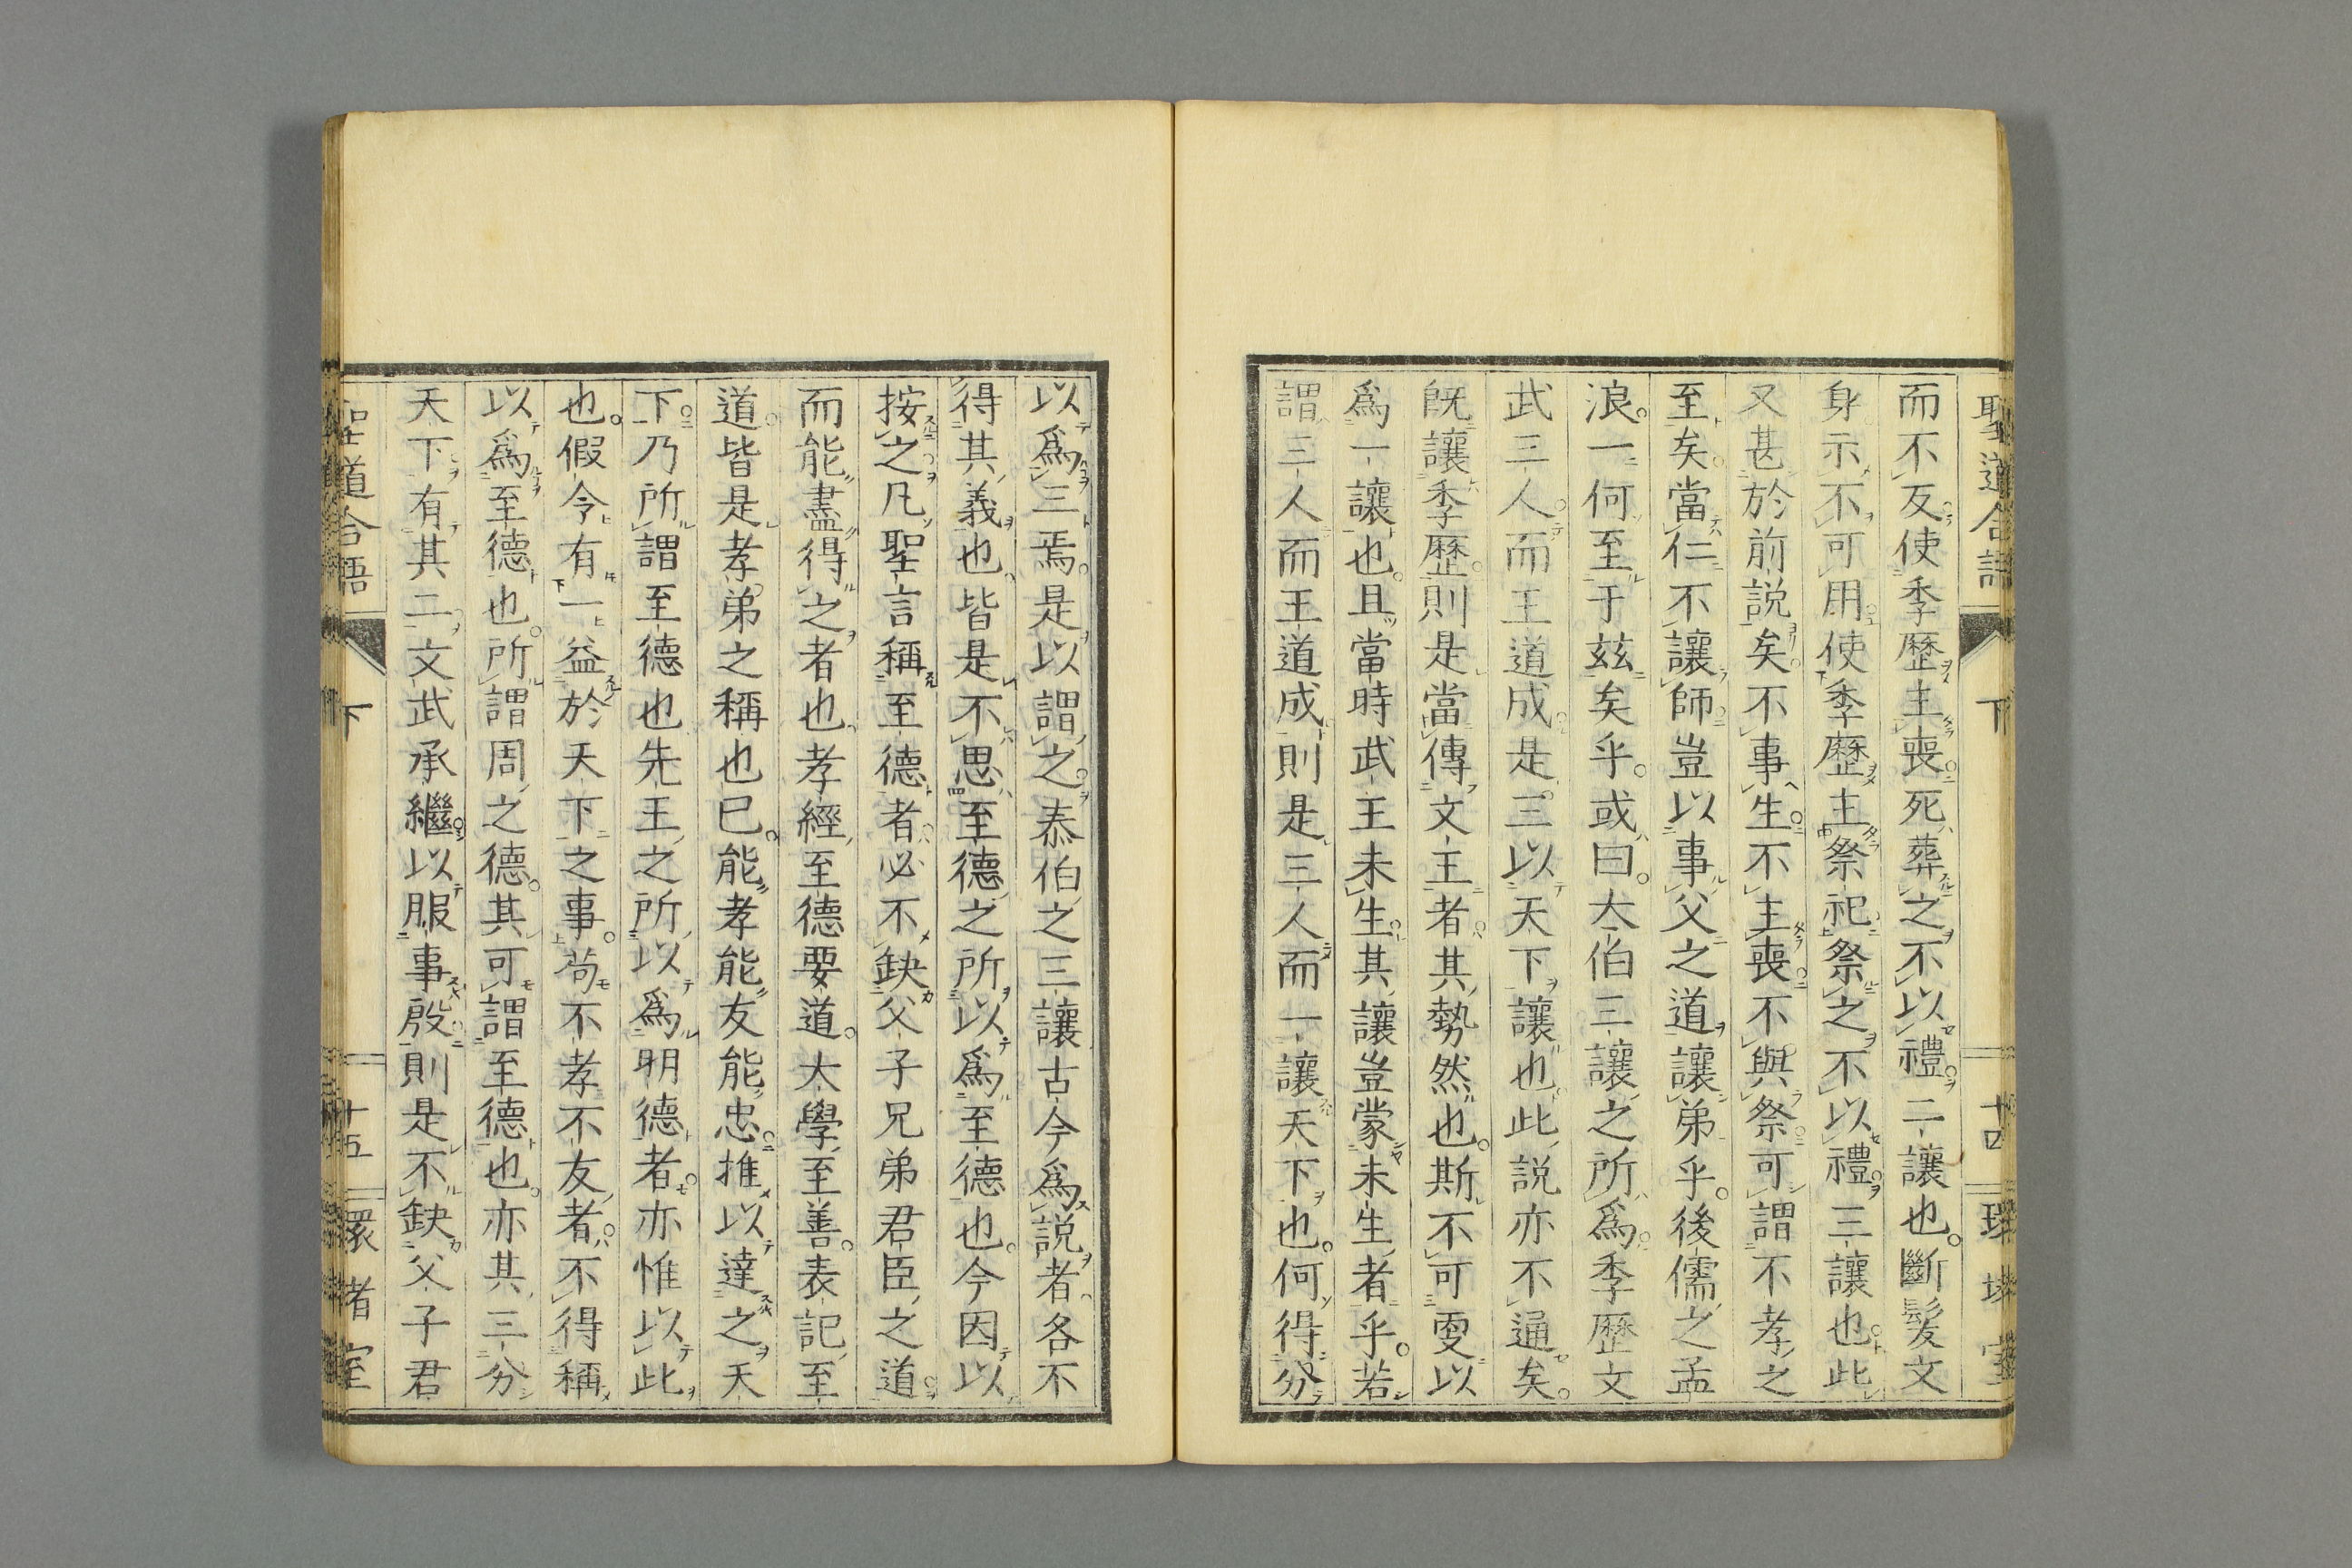 聖道合語 下 十四 環堵室
而不反使季歷主喪死葬之不以禮二讓也斷髮文
身示不可用使季歷主祭祀祭之不以禮三讓也此
又甚於前説矣不事生不主喪不與祭可謂不孝之
至矣當仁不讓師豈以事父之道讓弟乎後儒之孟
浪一何至于玆矣乎或曰太伯三讓之所爲季歷文
武三人而王道成是三以天下讓也此説亦不通矣
既讓季歷則是當傳文王者其勢然也斯不可更以
爲一讓也且當時武王未生其讓豈蒙未生者乎若
謂三人而王道成則是三人而一讓天下也何得分
以爲三焉是以謂之泰伯之三讓古今爲説者各不
得其義也皆是不思至德之所以爲至德也今因以
按之凡聖言稱至德者必不缺父子兄弟君臣之道
而能盡得之者也孝經至德要道大學至善表記至
道皆是孝弟之稱也已能孝能友能忠推以達之天
下乃所謂至德也先王之所以爲明德者亦惟以此
也假令有一益於天下之事苟不孝不友者不得稱
以爲至德也所謂周之德其可謂至德也亦其三分
天下有其二文武承繼以服事殷則是不缺父子君
聖道合語 下 十五 環堵室